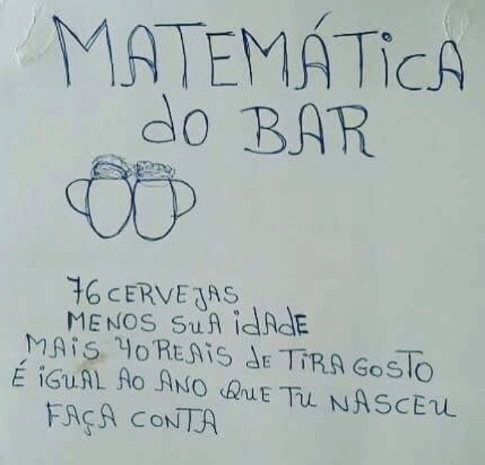 MATEMÁTiCA
do BAR
76 CERVEJAS
MENOS SUA idAdE
MAIS 40 REAiS dE TiRA GOSTO
É iGUAL AO ANO QUE TU NASCEU
FAÇA CONTA